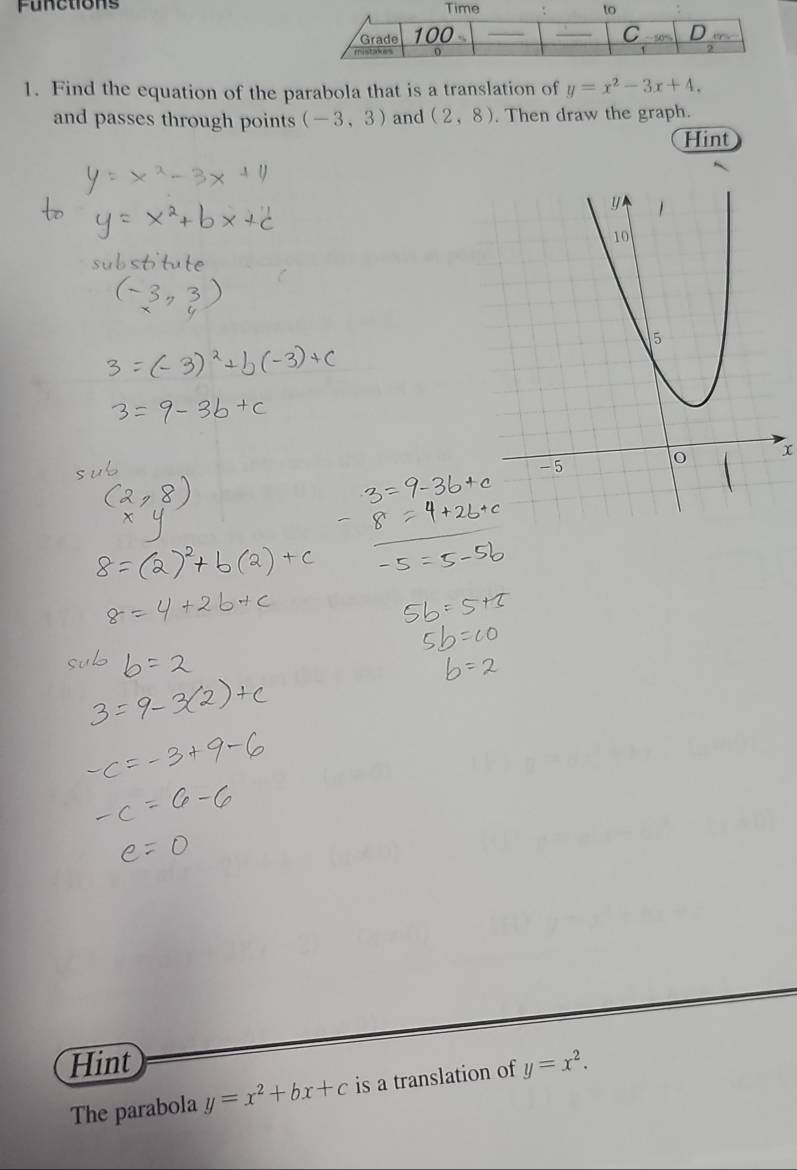 Functions
Time : to :
Grade 100 % — — C ~50% D
mistakes 0 1 2
1. Find the equation of the parabola that is a translation of y = x² − 3x + 4,
and passes through points (−3, 3) and (2, 8). Then draw the graph.
Hint
y = x² − 3x + 4
to y = x² + bx + c
substitute
(−3, 3)
x y
3 = (−3)² + b(−3) + c
3 = 9 − 3b + c
sub
(2, 8)
x y
8 = (2)² + b(2) + c
8 = 4 + 2b + c
3 = 9 − 3b + c
− 8 = 4 + 2b + c
−5 = 5 − 5b
5b = 5 + 5
5b = 10
b = 2
sub b = 2
3 = 9 − 3(2) + c
−c = −3 + 9 − 6
−c = 6 − 6
c = 0
y
10
5
−5
O
x
Hint
The parabola y = x² + bx + c is a translation of y = x².